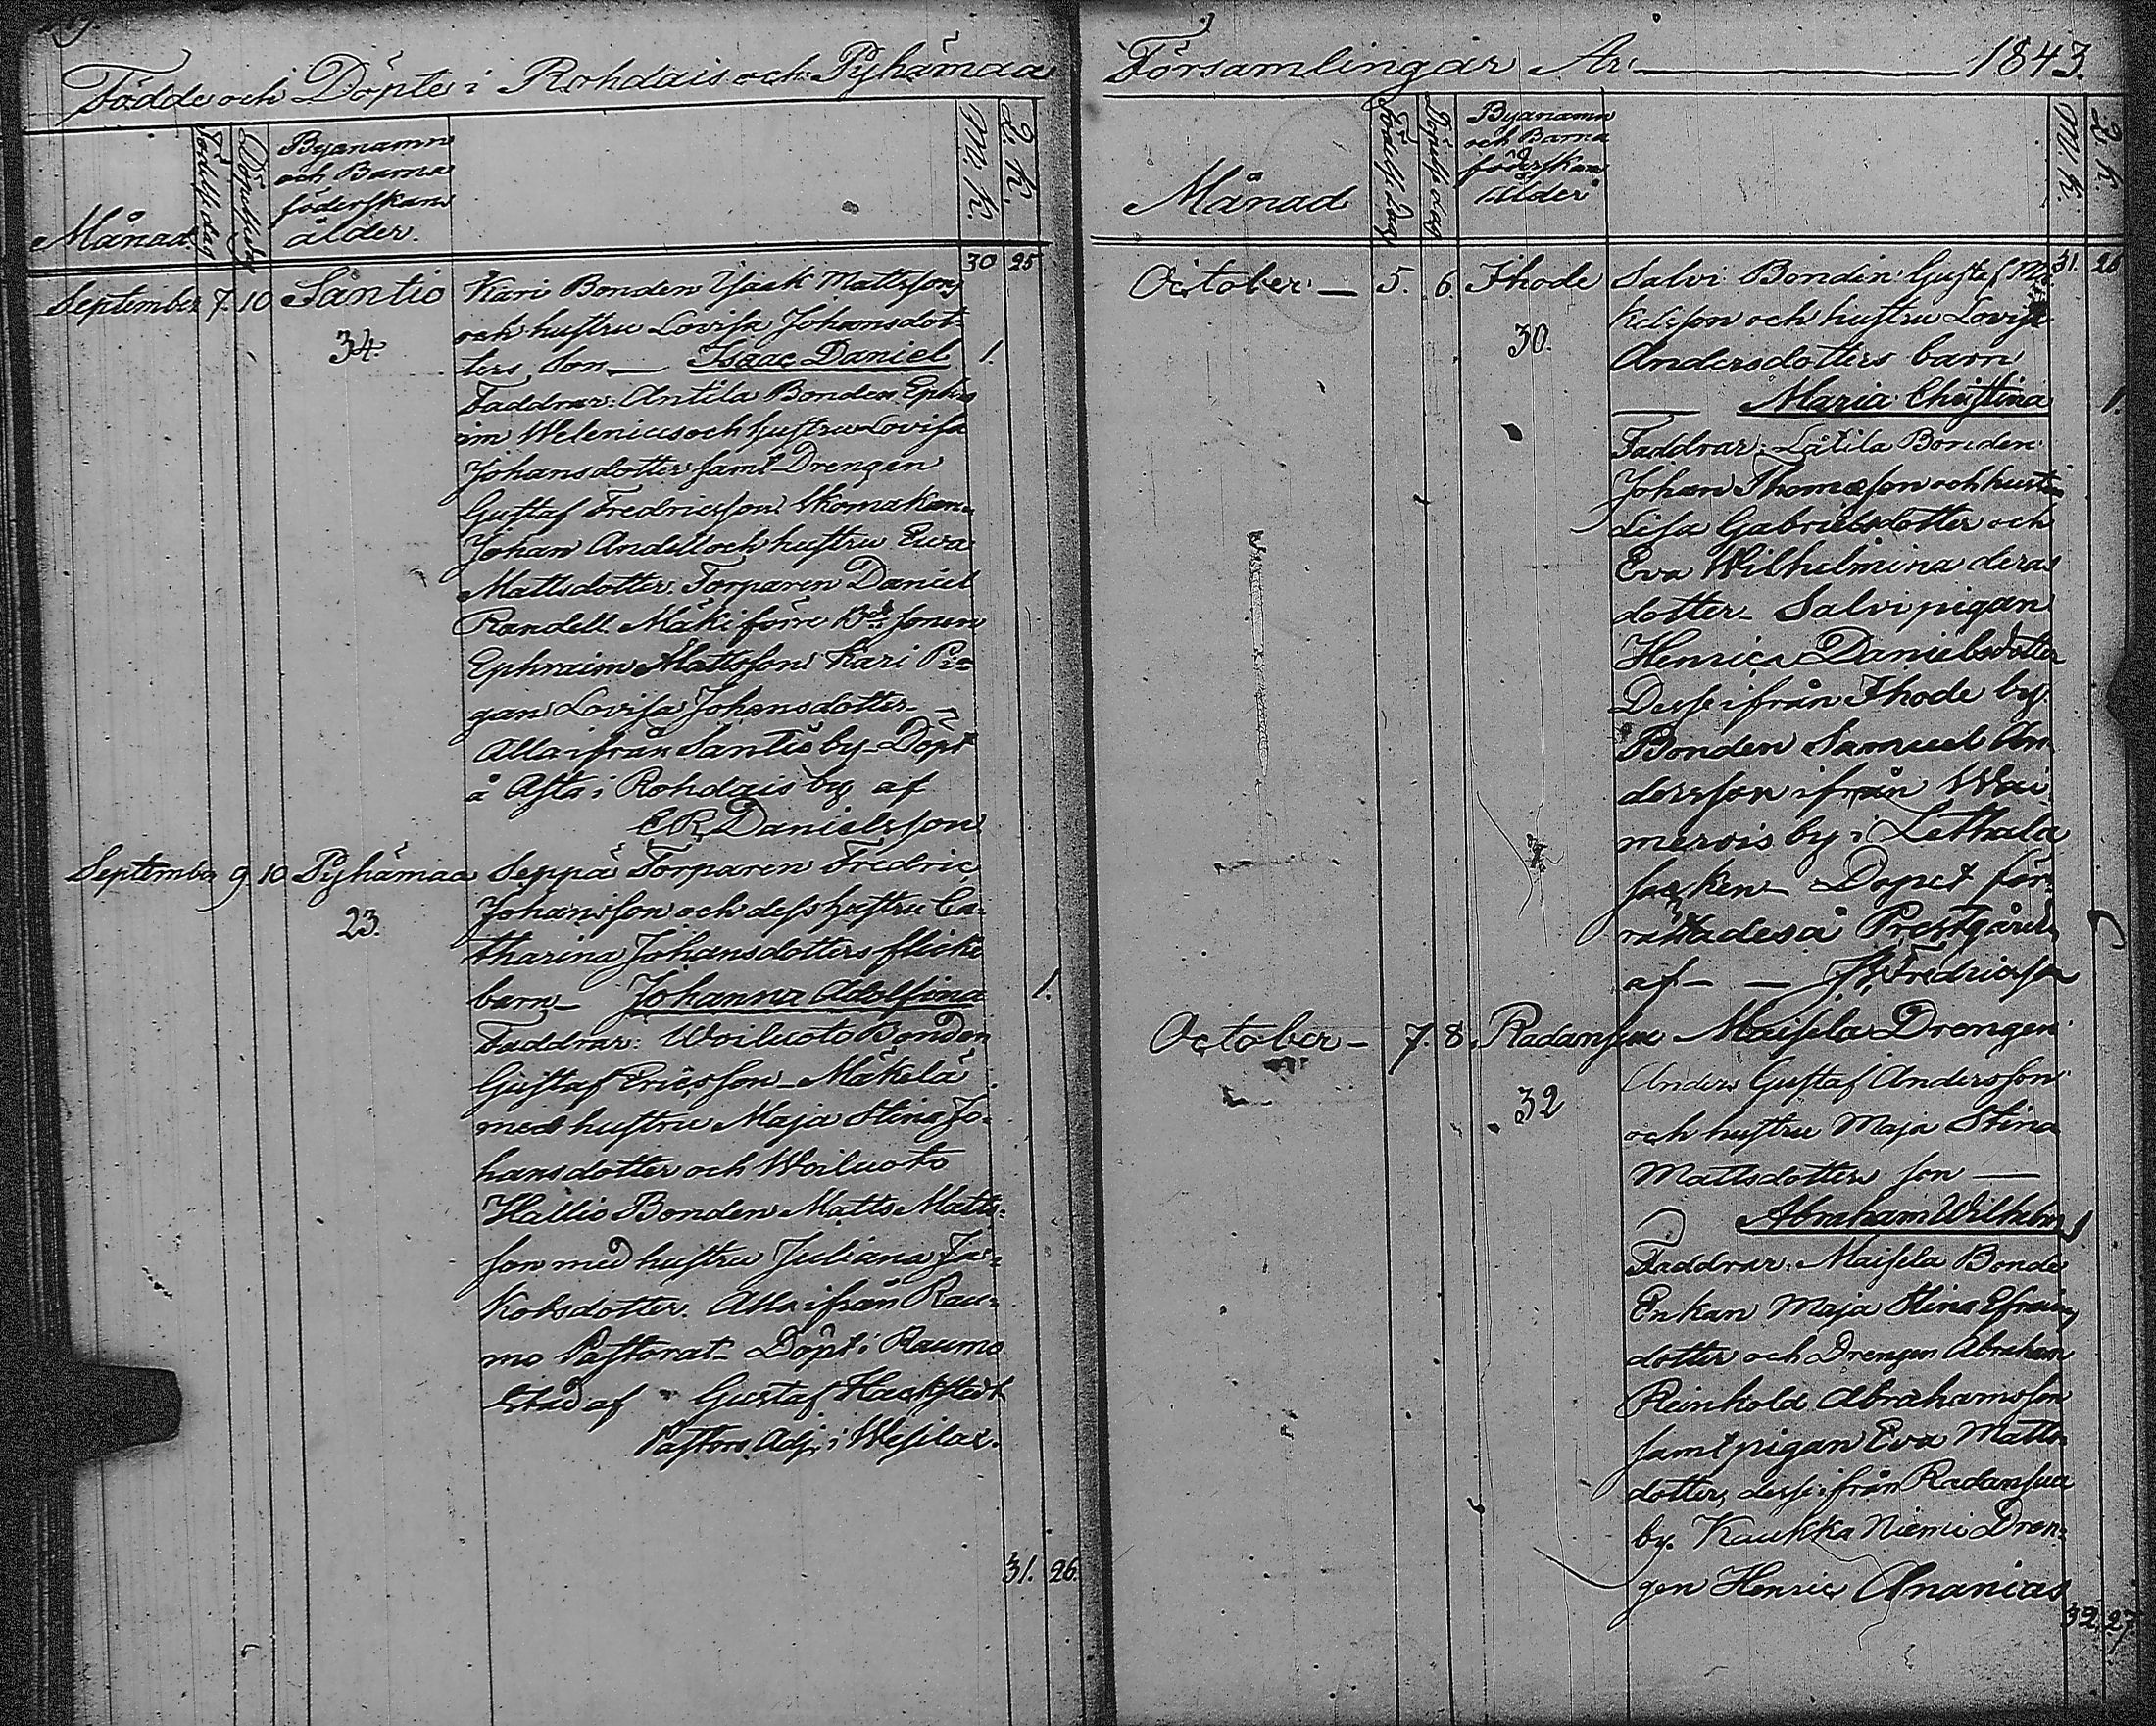 Födde och Döpte i Rohdais och Pyhämaa
Månad
Födelsedag
Döpelsedag
Byanamn
och Barna
föderskans
ålder.
M. K.
Q. K.
30 25
September 7. 10 Santio
34.
Kari Bonden Isaak Mattsson
och hustru Lovisa Johansdot-
ters Son — Isaac Daniel 1.
Faddrar: Antila Bonden Ephra
im Welenius och hustru Lovisa
Johansdotter samt Drengen
Gustaf Fredricsson Skomakaren
Johan Andell och hustru Euva
Mattsdotter. Torparen Daniel
Randell. Mäki förre Bde sonen
Ephraim Mattsson Kari Pi=
gan Lovisa Johansdotter —
Alla ifrån Santio by — Döpt
å i Rohdais by af
E R Danielsson
September 9 10 Pyhämaa
23.
Seppä Torparen Fredric
Johansson och dess hustru Ca-
tharina Johansdotters flicke
barn — Johanna Adolfina 1.
Faddrar: Woiluoto Bonden
Gustaf Ericsson — Mäkelä
med hustru Maja Stina Jo-
hansdotter och Woiluoto
Hallio Bonden Matts Matts-
son med hustru Juliana Ja-
kobsdotter. Alla ifrån Rau=
mo Pastorat — Döpt i Raumo
Stad af Gustaf
Pastors Adj. i
31. 26.
Församlingar År 1843.
Månad
Födelsedag
Döpelsedag
Byanamn
och Barna
föderskans
ålder
M. K.
Q. K.
31. 26
October — 5. 6. Ihode
30.
Salvi Bonden Gustaf Mi
kelsson och hustru Lovisa
Andersdotters barn
— Maria Christina 1.
Faddrar: Låtila Bonden
Johan Thomasson och hustru
Lisa Gabrielsdotter och
Eva Wilhelmina deras
dotter — Salvi pigan
Henrica Danielsdotter
Desse ifrån Ihode by.
Bonden Samuel An
dersson ifrån Wai
merois by i Lethala
socken — Dopet för-
rättades å Prestgården
af — — Fredricsson
October — 7. 8. Radansuu
32
Maisela Drengen
Anders Gustaf Andersson
och hustru Maja Stina
Mattsdotters son —
Abraham Wilhelm 1
Faddrar: Maisela Bonde
Enkan Maja Stina Efraims
dotter och Drengen Abraham
Reinhold Abrahamsson
samt pigan Eva Matts-
dotter, desse ifrån Radansuu
by. Kaukka Niemi Dren-
gen Henric Ananias
32. 27.